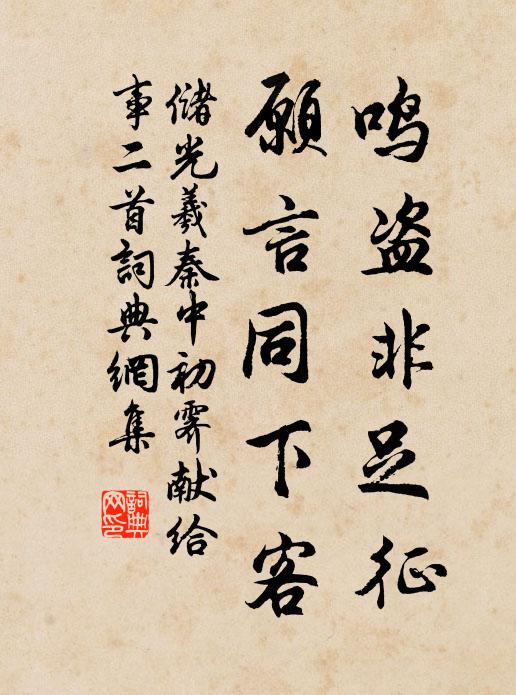 鸣盗非足征
願言同下客
储光羲秦中初霁献给
事二首詞典網集
詞典
网印